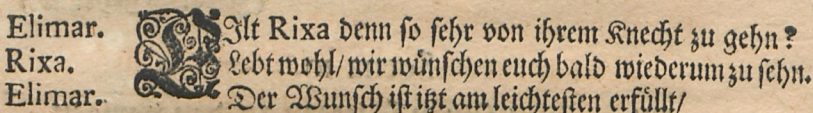 Elimar. EIlt Rixa denn ſo ſehr von ihrem Knecht zu gehn?
Rixa. Lebt wohl/ wir wünſchen euch bald wiederum zu ſehn.
Elimar. Der Wunſch iſt itzt am leichteſten erfüllt/